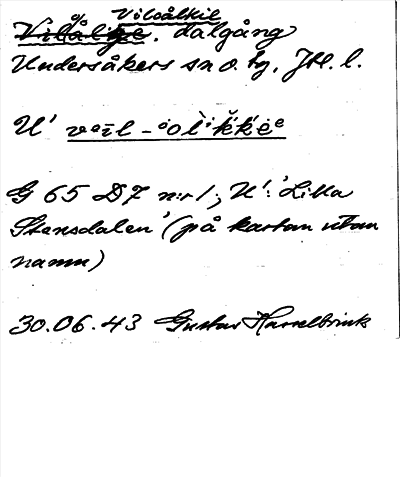 Vilsålkie
Vilålije. dalgång
Undersåkers sn o. hg, Jtl. l.
U' 
G 65 D7 n:r 1; U': 'Lilla
Stensdalen' (på kartan utan
namn)
30.06.43 Gustav Hasselbrink